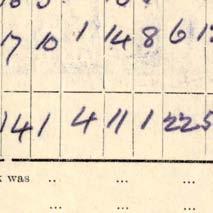 17 10 1 14 8 6
141 4 11 1 225
was .. ... ...
... ... ...